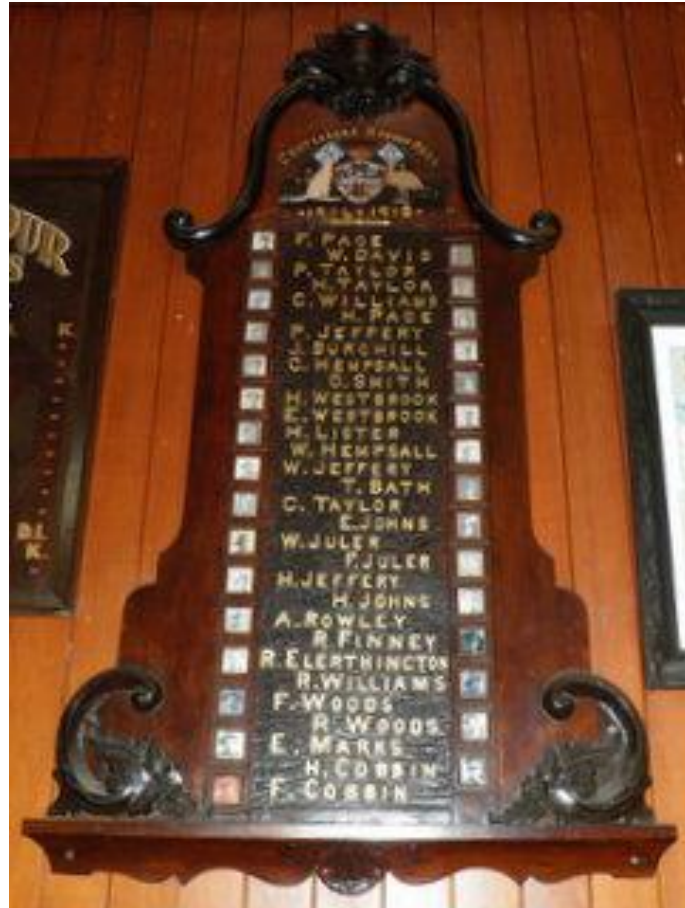 HONOUR ROLL
1914-1919
F. PAGE
W. DAVID
P. TAYLOR
H. TAYLOR
C. WILLIAMS
H. PAGE
P. JEFFERY
J. BURGHILL
C. HEMPSALL
O. SMITH
H. WESTBROOK
E. WESTBROOK
H. LISTER
W. HEMPSALL
W. JEFFERY
T. BATH
C. TAYLOR
E. JOHNS
W. JULER
F. JULER
H. JEFFERY
H. JOHNS
A. ROWLEY
R. FINNEY
R. ELERTHINGTON
R. WILLIAMS
F. WOODS
R. WOODS
E. MARKS
H. COBBIN
F. COBBIN
OUR
S
K.
D.I.
K.